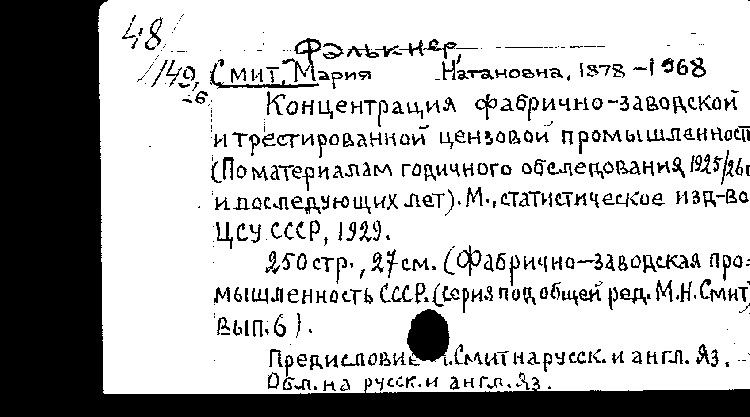 48/
Фэлькнер,
149, Смит, Мария Натановна, 1878-1968
-6
Концентрация фабрично-заводской
и трестированной цензовой промышленност
(По материалам годичного обследования 1925/26г
и последующих лет). М., статистическое изд-во
ЦСУ СССР, 1929.
250 стр., 27 см. (Фабрично-заводская про-
мышленность СССР. (серия под общей ред. М.Н. Смит)
вып. 6).
Предисловие М. Смит на русск. и англ. яз.
Обл. на русск. и англ. яз.